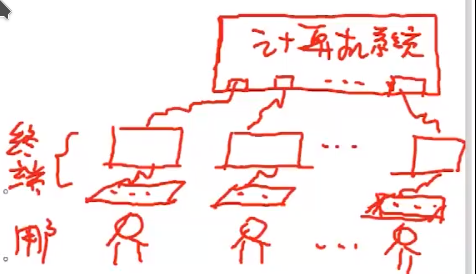 计算机系统
...
终端
...
用户
...